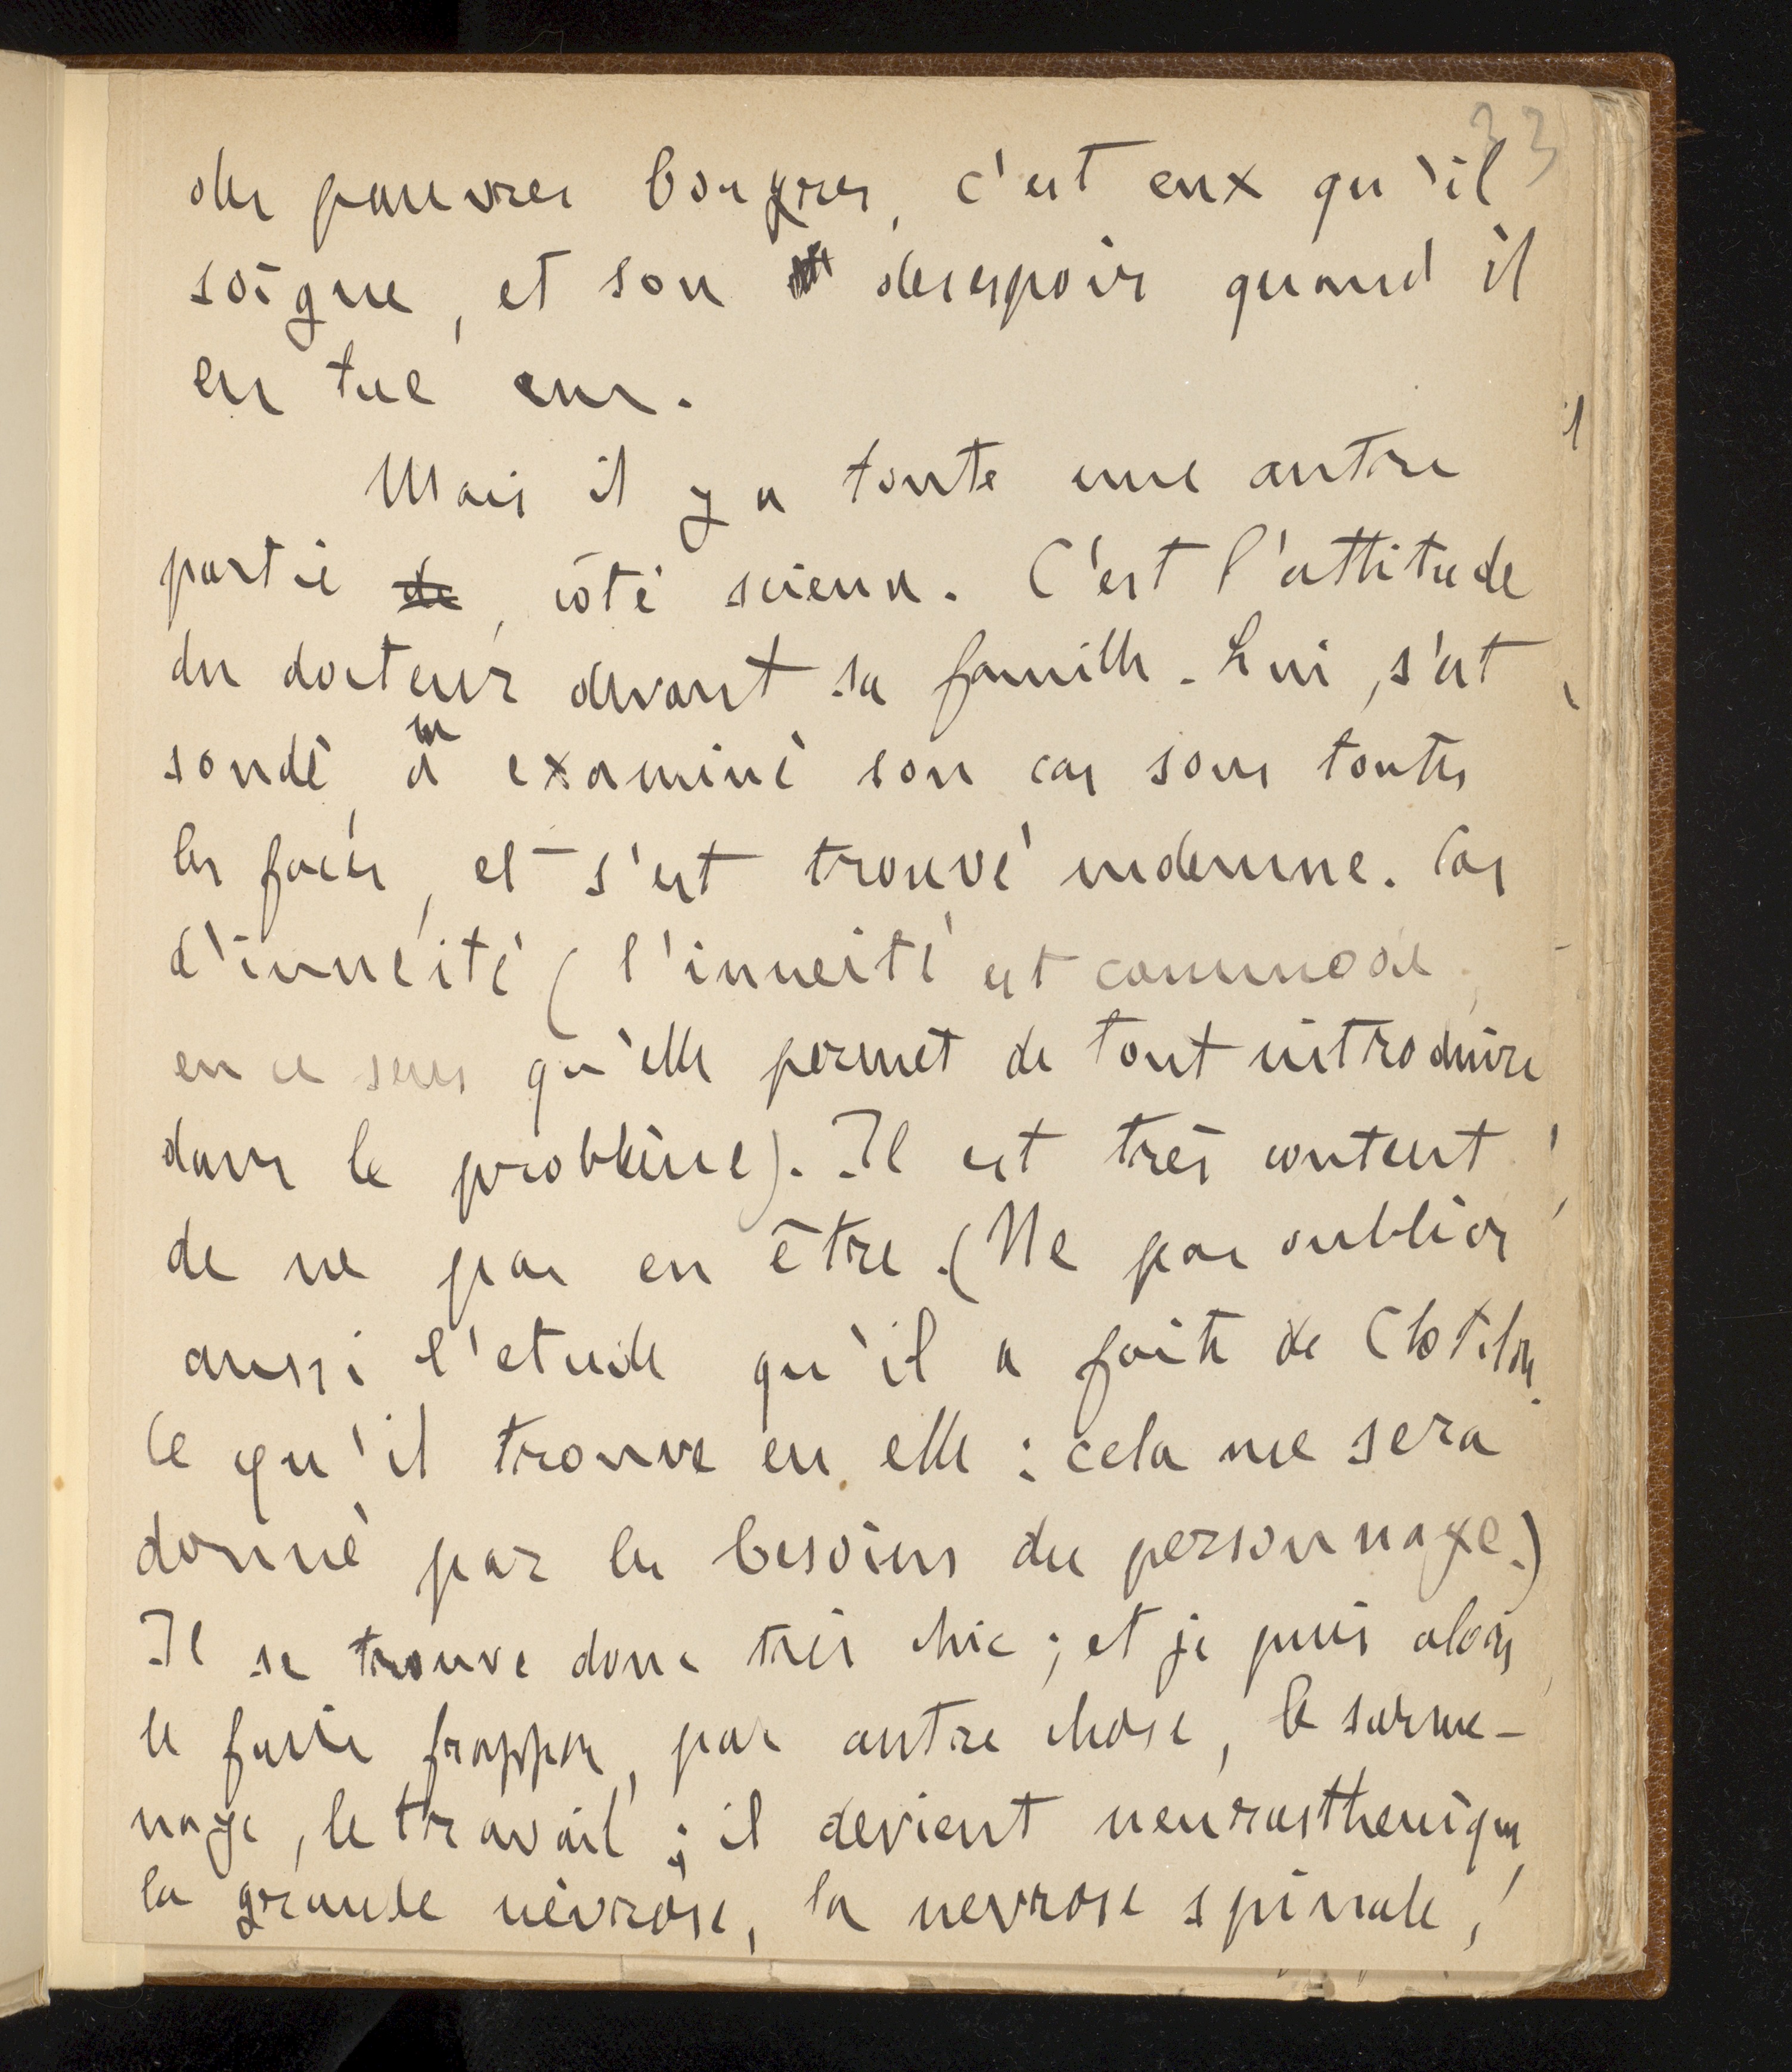 33
des pauvres bougres, c'est eux qu'il
soigne, et son desespoir quand il
en tue un.
Mais il y a toute une autre
partie de, côté scienx. C'est l'attitude
du docteur devant sa famille. Lui, s'est
sondé, a examiné son cas sous toutes
les faces, et s'est trouvé indemne. Cas
d'innéité (l'inneité est commode,
en ce sens qu'elle permet de tout introduire
dans le problème). Il est très content
de ne pas en être. (Ne pas oublier
aussi l'etude qu'il a faite de Clotilde.
Ce qu'il trouve en elle : cela me sera
donné par les besoins du personnage.)
Il se trouve donc très chic ; et je puis alors
le faire frapper, par autre chose, le surme-
nage, le travail ; il devient neurasthenique,
la grande névrose, la nevrose spinale,